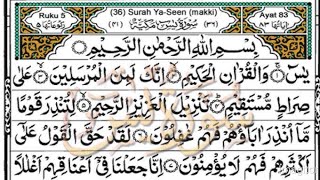 Ruku 5 (36) Surah Ya-Seen (makki) Ayat 83
بِسْمِ اللّٰهِ الرَّحْمٰنِ الرَّحِيْمِ
يٰسٓ ۚ وَالْقُرْاٰنِ الْحَكِيْمِ ۙ اِنَّكَ لَمِنَ الْمُرْسَلِيْنَ ۙ عَلٰى
صِرَاطٍ مُّسْتَقِيْمٍ ؕ تَنْزِيْلَ الْعَزِيْزِ الرَّحِيْمِ ۙ لِتُنْذِرَ قَوْمًا
مَّاۤ اُنْذِرَ اٰبَآؤُهُمْ فَهُمْ غٰفِلُوْنَ لَقَدْ حَقَّ الْقَوْلُ عَلٰۤى
اَكْثَرِهِمْ فَهُمْ لَا يُؤْمِنُوْنَ اِنَّا جَعَلْنَا فِيْۤ اَعْنَاقِهِمْ اَغْلٰلًا